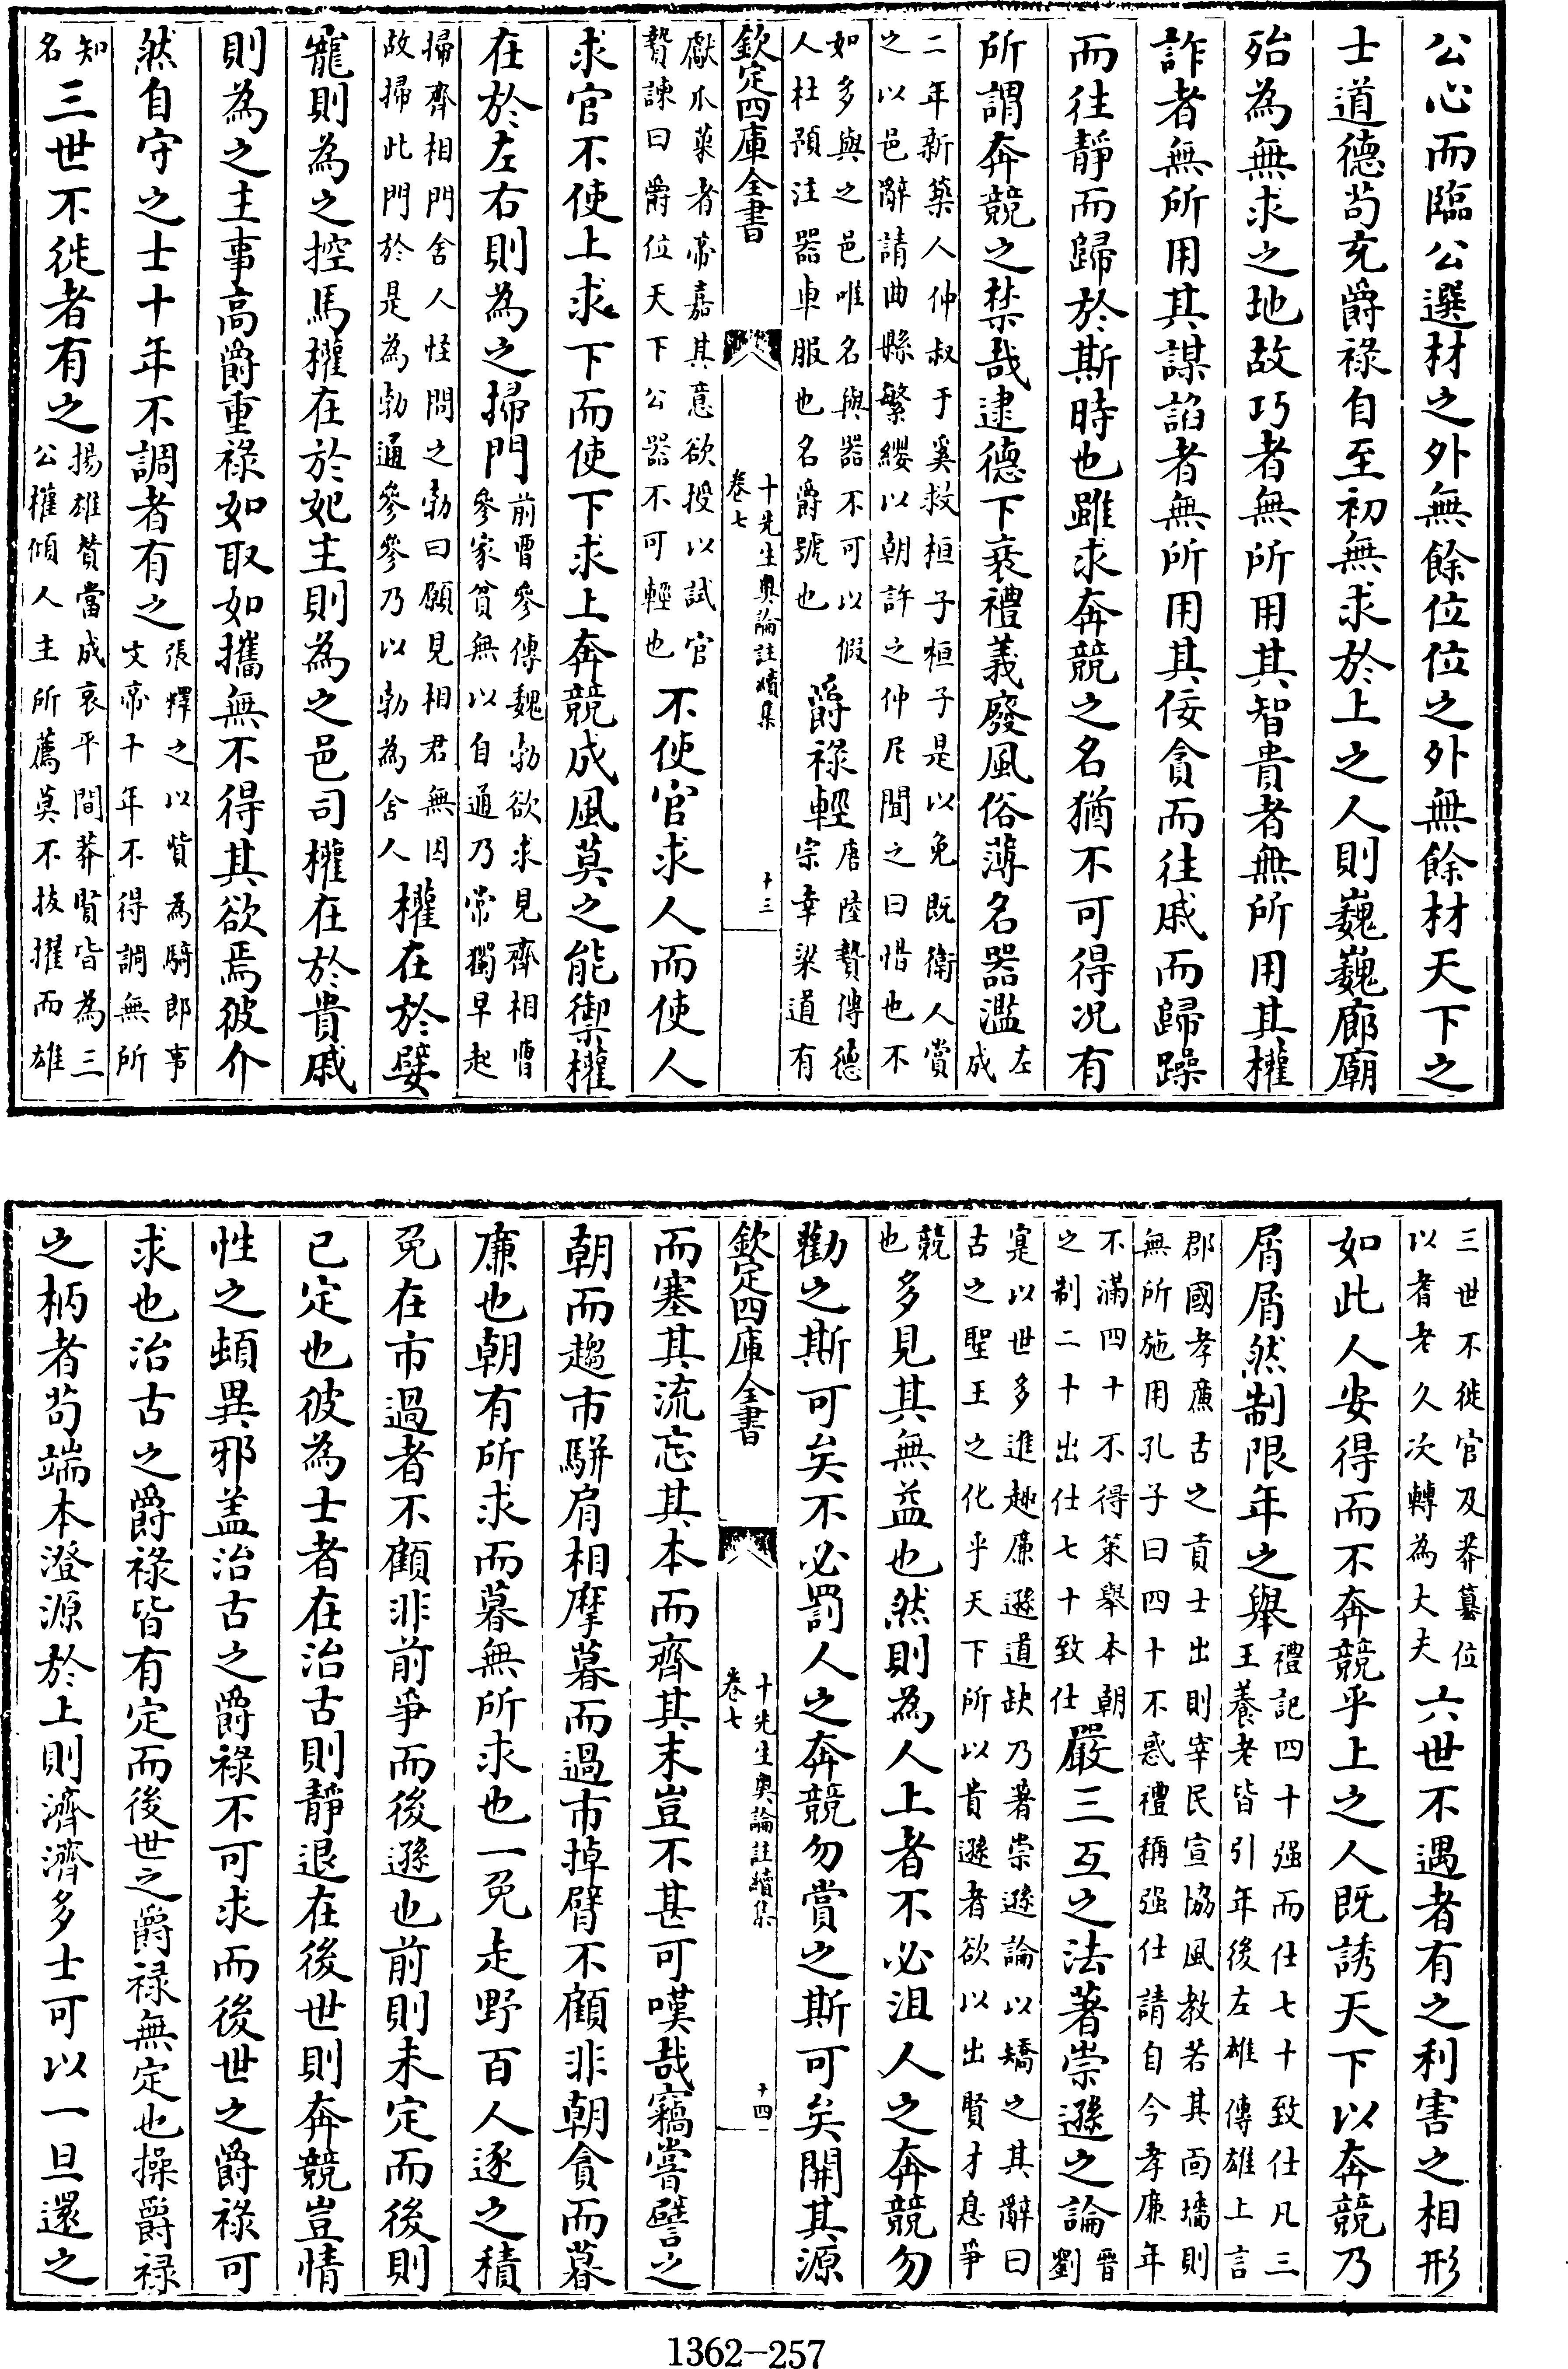 公心而臨公選材之外無餘位位之外無餘材天下之
士道德苟充爵祿自至初無求於上之人則巍巍廊廟
殆為無求之地故巧者無所用其智貴者無所用其權
詐者無所用其謀諂者無所用其佞貪而往戚而歸躁
而往靜而歸於斯時也雖求奔競之名猶不可得况有
所謂奔競之禁哉逮德下衰禮義廢風俗薄名器濫左成
二年新築人仲叔于奚救桓子桓子是以免既衛人賞
之以邑辭請曲縣繁纓以朝許之仲尼聞之曰惜也不
如多與之邑唯名與器不可以假
人杜預注器車服也名爵號也
爵祿輕唐陸贄傳德
宗幸梁道有
欽定四庫全書
十先生奥論註續集
卷七
十三
獻瓜菓者帝嘉其意欲授以試官
贄諫曰爵位天下公器不可輕也
不使官求人而使人
求官不使上求下而使下求上奔競成風莫之能禦權
在於左右則為之掃門前曹參傳魏勃欲求見齊相曹
參家貧無以自通乃常獨早起
掃齊相門舍人怪問之勃曰願見相君無因
故掃此門於是為勃通參參乃以勃為舍人
權在於嬖
寵則為之控馬權在於妃主則為之邑司權在於貴戚
則為之主事高爵重祿如取如攜無不得其欲焉彼介
然自守之士十年不調者有之張釋之以貲為騎郎事
文帝十年不得調無所
知名三世不徙者有之揚雄贊當成哀平間莽賢皆為三
公權傾人主所薦莫不拔擢而雄
三世不徙官及莽簒位
以耆老久次轉為大夫
六世不遇者有之利害之相形
如此人安得而不奔競乎上之人既誘天下以奔競乃
屑屑然制限年之舉禮記四十强而仕七十致仕凡三
王養老皆引年後左雄傳雄上言
郡國孝廉古之貢士出則宰民宣協風教若其面墻則
無所施用孔子曰四十不惑禮稱强仕請自今孝廉年
不滿四十不得策舉本朝
之制二十出仕七十致仕
嚴三互之法著崇遜之論晉
劉
寔以世多進趣廉遜道缺乃著崇遜論以矯之其辭曰
古之聖王之化乎天下所以貴遜者欲以出賢才息爭
競也多見其無益也然則為人上者不必沮人之奔競勿
勸之斯可矣不必罰人之奔競勿賞之斯可矣開其源
欽定四庫全書
十先生奥論註續集
卷七
十四
而塞其流忘其本而齊其末豈不甚可嘆哉竊嘗譬之
朝而趨市駢肩相摩暮而過市掉臂不顧非朝貪而暮
廉也朝有所求而暮無所求也一兔走野百人逐之積
兔在市過者不顧非前爭而後遜也前則未定而後則
已定也彼為士者在治古則靜退在後世則奔競豈情
性之頓異邪盖治古之爵祿不可求而後世之爵祿可
求也治古之爵祿皆有定而後世之爵祿無定也操爵祿
之柄者苟端本澄源於上則濟濟多士可以一旦還之
1362-257